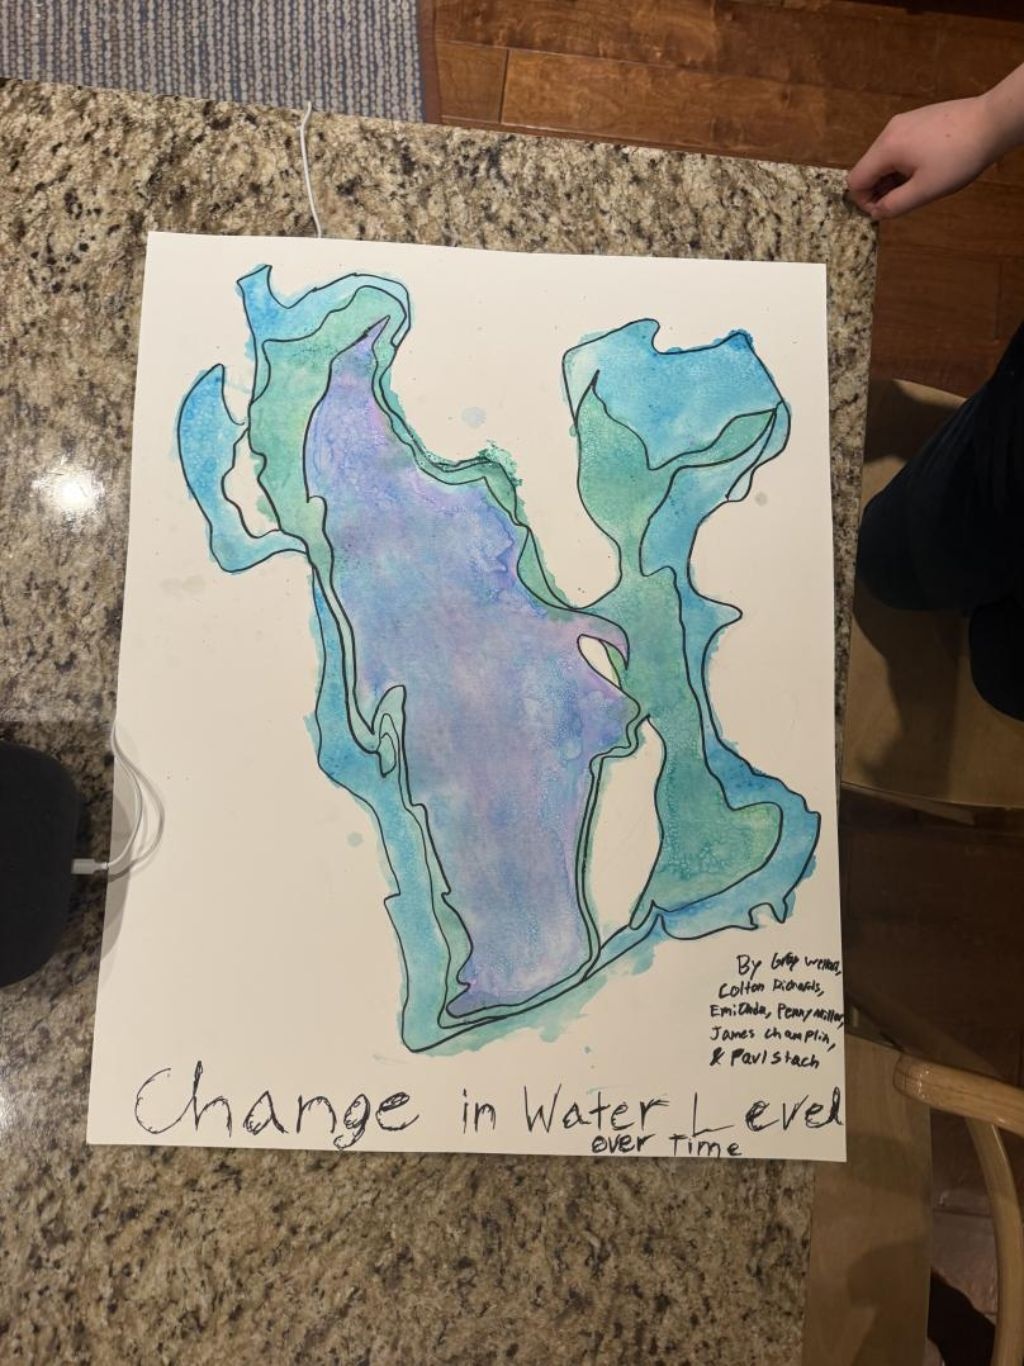 By Gray
Colton Richards,
Emi Onda, Penny Miller,
James Champlin,
& Paul Stach
Change in Water Level
over Time